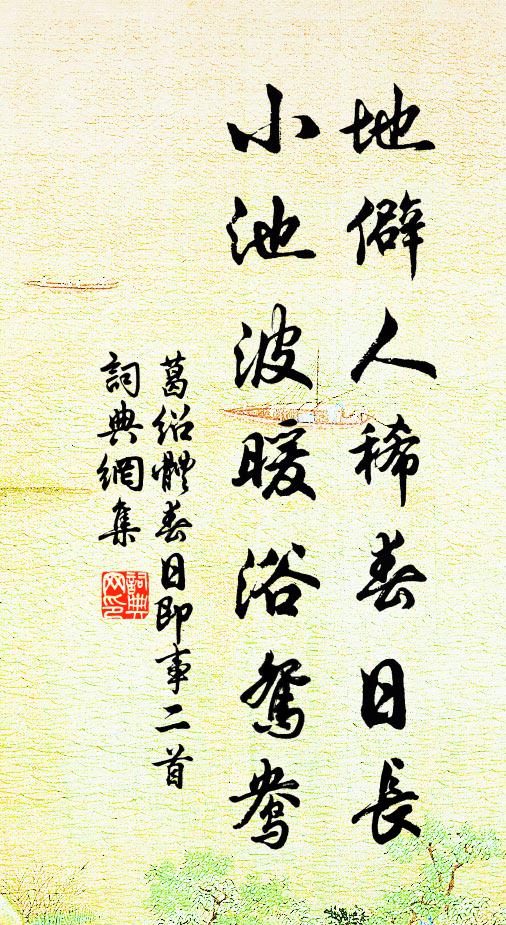 地僻人稀春日長
小池波暖浴鴛鴦
葛紹體春日即事二首
詞典網集
詞典网印